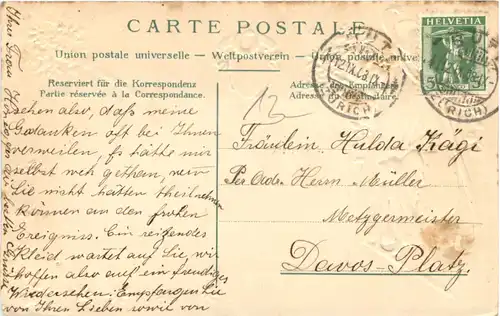 CARTE POSTALE
Union postale universelle — Weltpostverein — Union postale universelle
Reserviert für die Korrespondenz
Partie réservée à la Correspondance.
Adresse des
Adresse
HELVETIA
5
(ZÜRICH)
(ZÜRICH)
12
sehen also, daß meine
Gedanken oft bei Ihnen
verweilen. Es hätte mir
selbst weh gethan, wenn
Sie nicht hätten theilnehmen
können an dem frohen
Ereigniss. Ein reifendes
Kleid wartet auf Sie, wir
hoffen also auf ein freudiges
Wiedersehen. Empfangen Sie
von Ihren Lieben sowie von
Ihrer Frau
Fräulein Hulda Kägi
Per Adr. Herrn Müller
Metzgermeister
Davos-Platz.